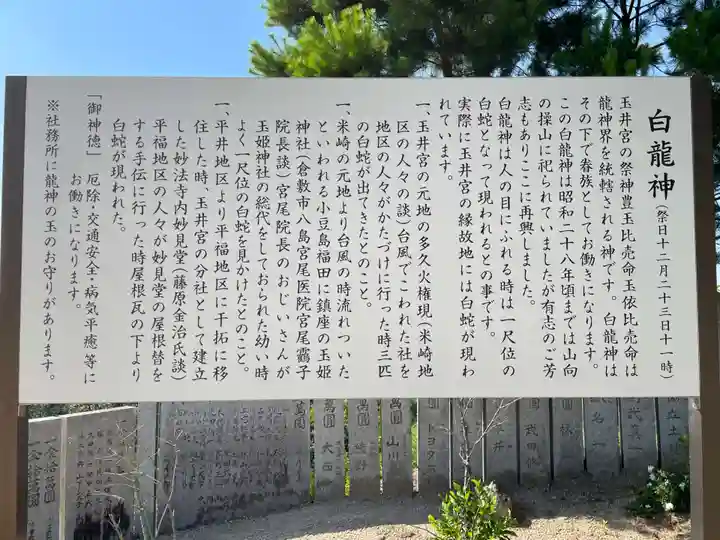 白龍神(祭日十二月二十三日十一時)
玉井宮の祭神豊玉比売命玉依比売命は
龍神界を統轄される神です。白龍神は
その下で眷族としてお働きになります。
この白龍神は昭和二十八年頃までは山向
の操山に祀られていましたが有志のご芳
志もありここに再興しました。
白龍神は人の目にふれる時は一尺位の
白蛇となって現われるとの事です。
実際に玉井宮の縁故地には白蛇が現わ
れています。
一、玉井宮の元地の多久火権現(米崎地
区の人々の談)台風でこわれた社を
地区の人々がかたづけに行った時三匹
の白蛇が出てきたとのこと。
一、米崎の元地より台風の時流れついた
といわれる小豆島福田に鎮座の玉姫
神社(倉敷市八島宮尾医院宮尾靄子
院長談)宮尾院長のおじいさんが
玉姫神社の総代をしておられた幼い時
よく一尺位の白蛇を見かけたとのこと。
一、平井地区より平福地区に干拓に移
住した時、玉井宮の分社として建立
した妙法寺内妙見堂(藤原金治氏談)
平福地区の人々が妙見堂の屋根替を
する手伝に行った時屋根瓦の下より
白蛇が現われた。
「御神徳」 厄除・交通安全・病気平癒等に
お働きになります。
※社務所に龍神の玉のお守りがあります。
萬圓 山川
萬圓 大西
萬圓
一金拾萬圓
一金拾萬圓